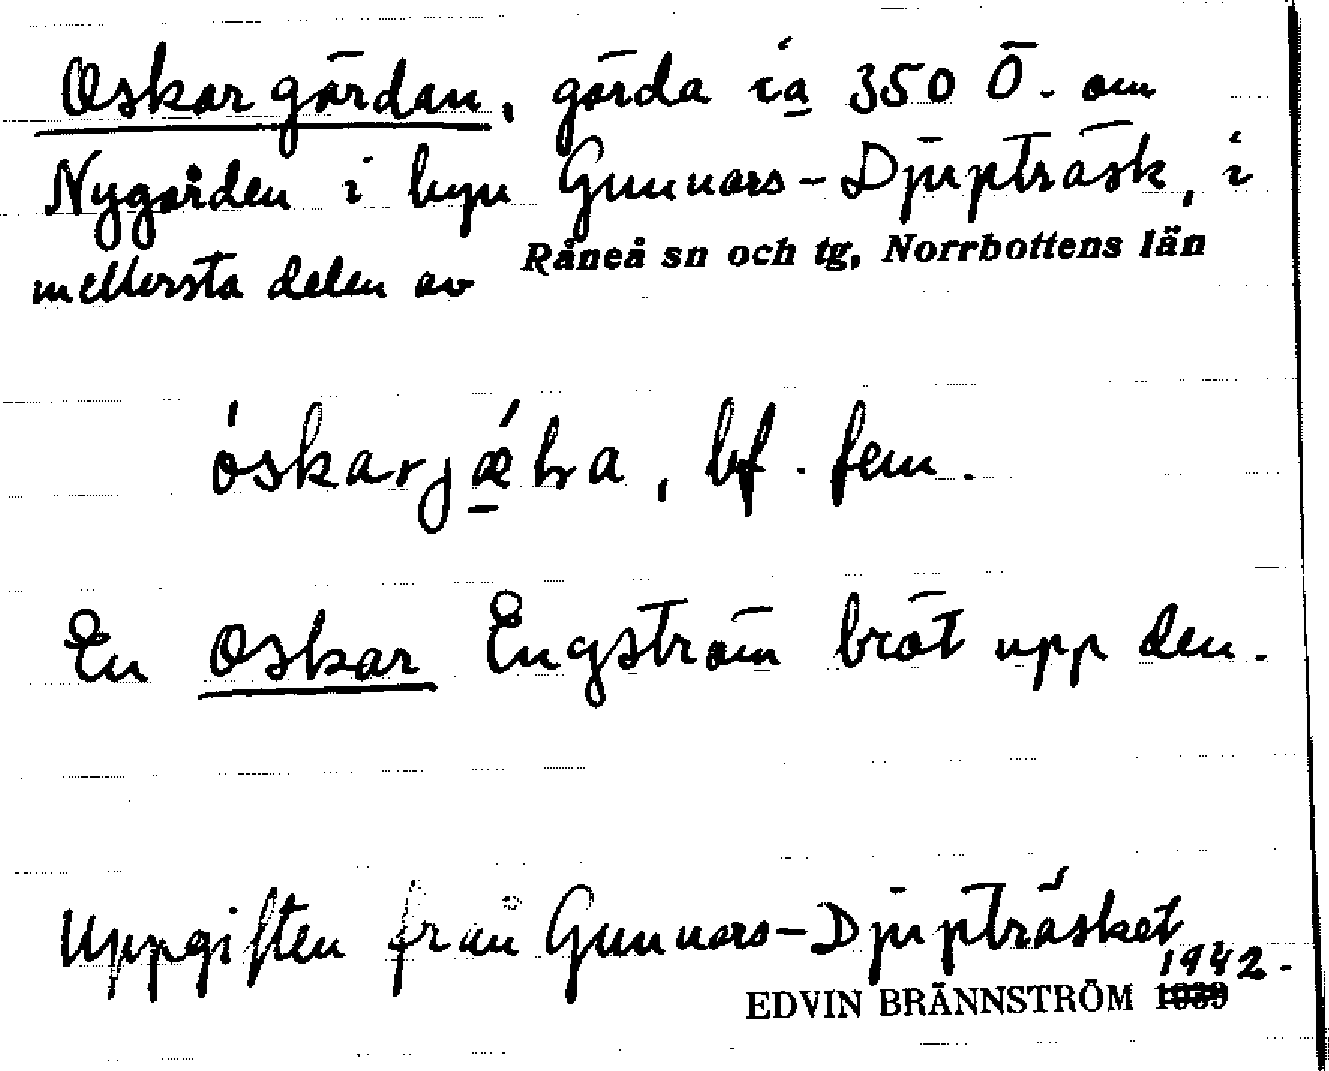 Oskargärdan, gärda ca 350 Ö. om
Nygården i byn Gunnars-Djupträsk, i
mellersta delen av Råneå sn och tg, Norrbottens län
óskarjǽḷra, bf. fem.
En Oskar Engström bröt upp den.
Uppgiften från Gunnars-Djupträsket
1942-
EDVIN BRÄNNSTRÖM 1939